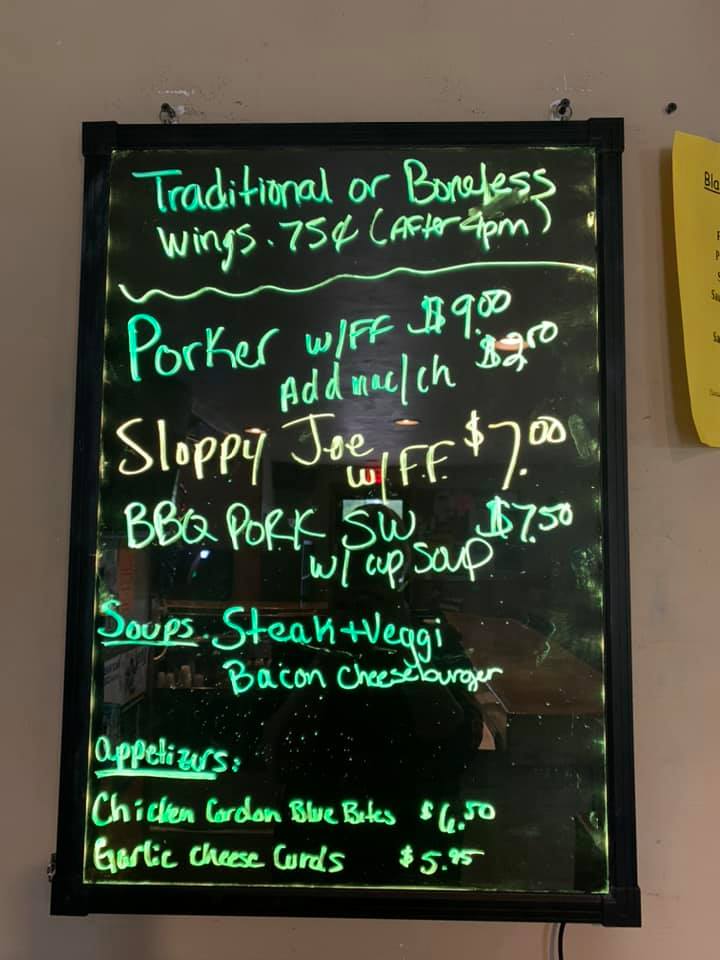 Traditional or Boneless
Wings. 75¢ (After 4pm)
Porker w/FF $9.00
Add mac/ch $2.50
Sloppy Joe $7.00
w/FF
BBQ PORK SW $7.50
w/ cup soup
Soups. Steak+Veggi
Bacon Cheeseburger
appetizers:
Chicken Cordon Blue Bites $6.50
Garlic Cheese Curds $5.95
Bla